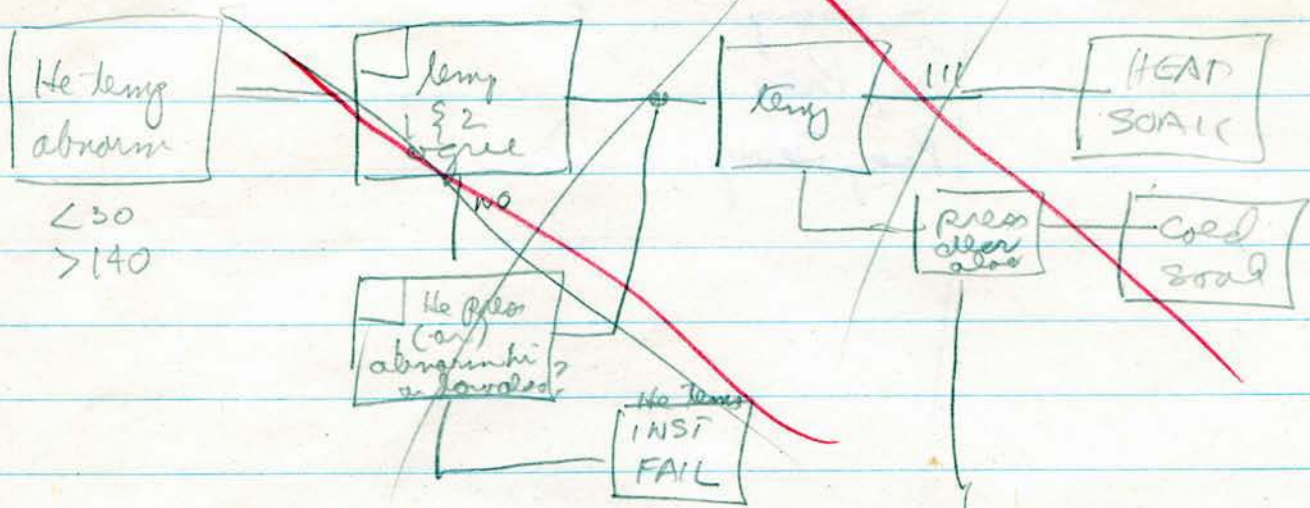 He temp
abnorm
<30
>140
temp
1 & 2
agree
NO
He press
(or)
abnorm hi
He temp
INST
FAIL
temp
111
HEAT
SOAK
press
also
cold
soak